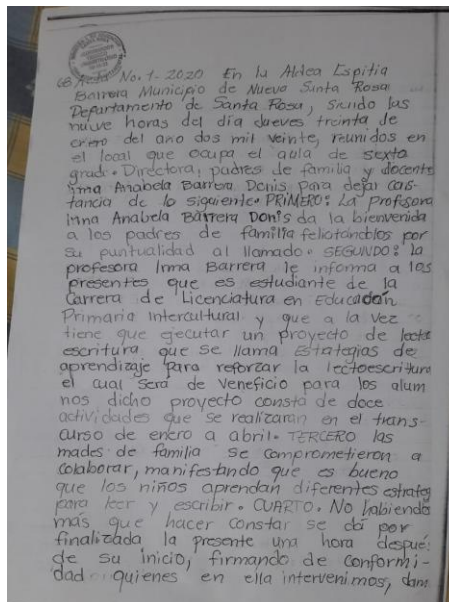 68 Acta No. 1-2020 En la Aldea Espitia
Barrera Municipio de Nueva Santa Rosa
Departamento de Santa Rosa, siendo las
nueve horas del día jueves treinta de
enero del año dos mil veinte, reunidos en
el local que ocupa el aula de sexto
grado. Directora, padres de familia y docente
Irma Anabela Barrera Donis para dejar cons-
tancia de lo siguiente. PRIMERO: La profesora
Irma Anabela Barrera Donis da la bienvenida
a los padres de familia felicitándolos por
su puntualidad al llamado. SEGUNDO: la
profesora Irma Barrera le informa a los
presentes que es estudiante de la
Carrera de Licenciatura en Educación
Primaria Intercultural y que a la vez
tiene que ejecutar un proyecto de lecto
escritura que se llama Estrategias de
aprendizaje para reforzar la lectoescritura
el cual será de veneficio para los alum
nos dicho proyecto consta de doce
actividades que se realizaran en el trans-
curso de enero a abril. TERCERO las
mades de familia se comprometieron a
colaborar, manifestando que es bueno
que los niños aprendan diferentes estrateg
para leer y escribir. CUARTO. No habiendo
más que hacer constar se dá por
finalizada la presente una hora despué
de su inicio, firmando de conformi-
dad quienes en ella intervenimos, dam